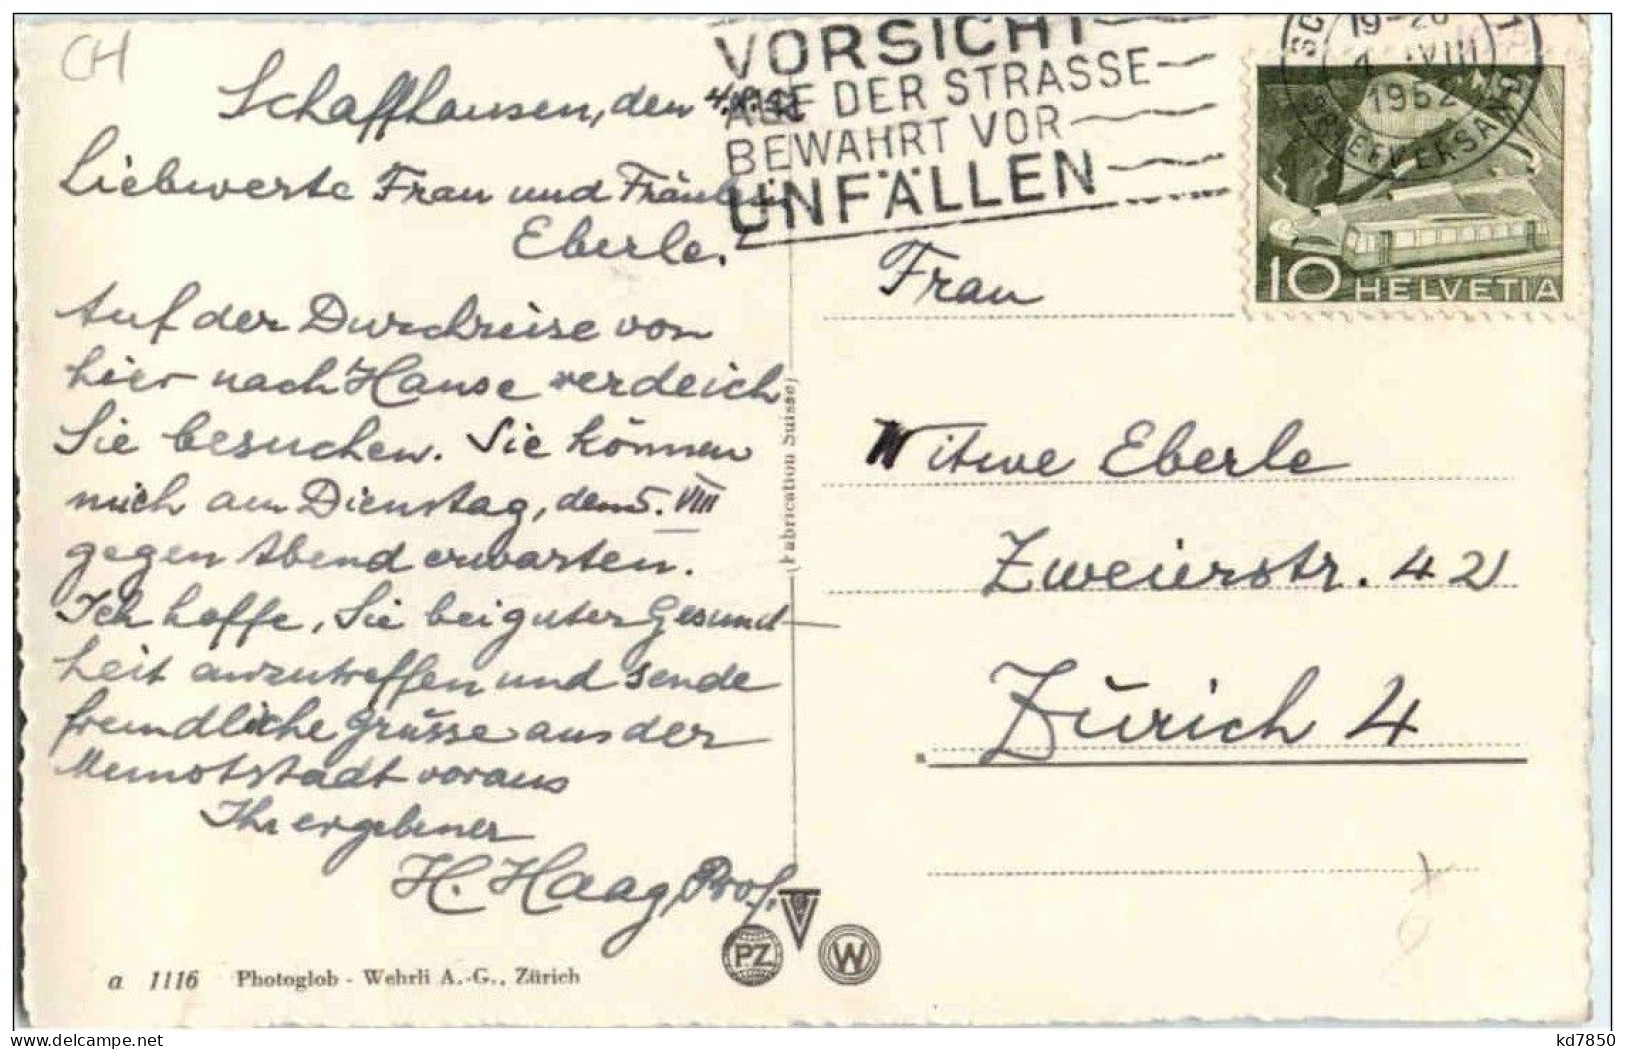 CH
Schaffhausen, den 4.
Liebwerte Frau und Fräulein
Eberle.
Auf der Durchreise von
hier nach Hause werde ich
Sie besuchen. Sie können
mich am Dienstag, dem 5. VIII
gegen Abend erwarten.
Ich hoffe, Sie bei guter Gesund-
heit anzutreffen und sende
freundliche Grüsse aus der
Munotstadt voraus
Ihr ergebener
H. Haag, Prof.
a 1116 Photoglob - Wehrli A.-G., Zürich
(Fabrication Suisse)
PZ
W
VORSICHT
AUF DER STRASSE
BEWAHRT VOR
UNFÄLLEN
19-20
VIII
1952
BRIEFVERSAND
10 HELVETIA
Frau
Witwe Eberle
Zweierstr. 42
Zürich 4
kd7850